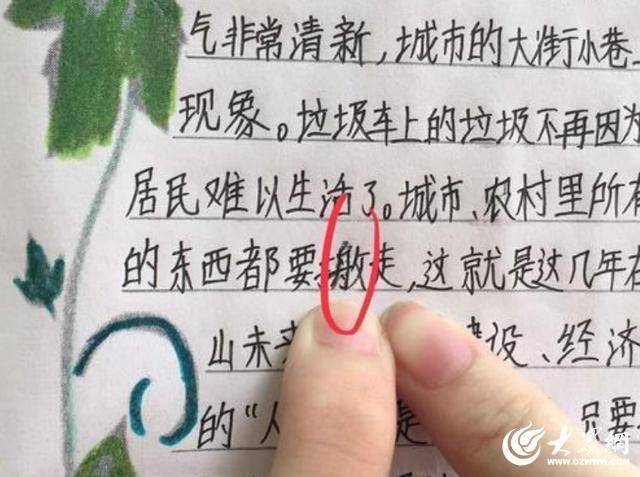 气非常清新，城市的大街小巷
现象。垃圾车上的垃圾不再因为
居民难以生活了。城市、农村里所有
的东西都要搬走，这就是这几年在
山未来 建设、经济
的“人 是 只要
大众網
www.dzwww.com